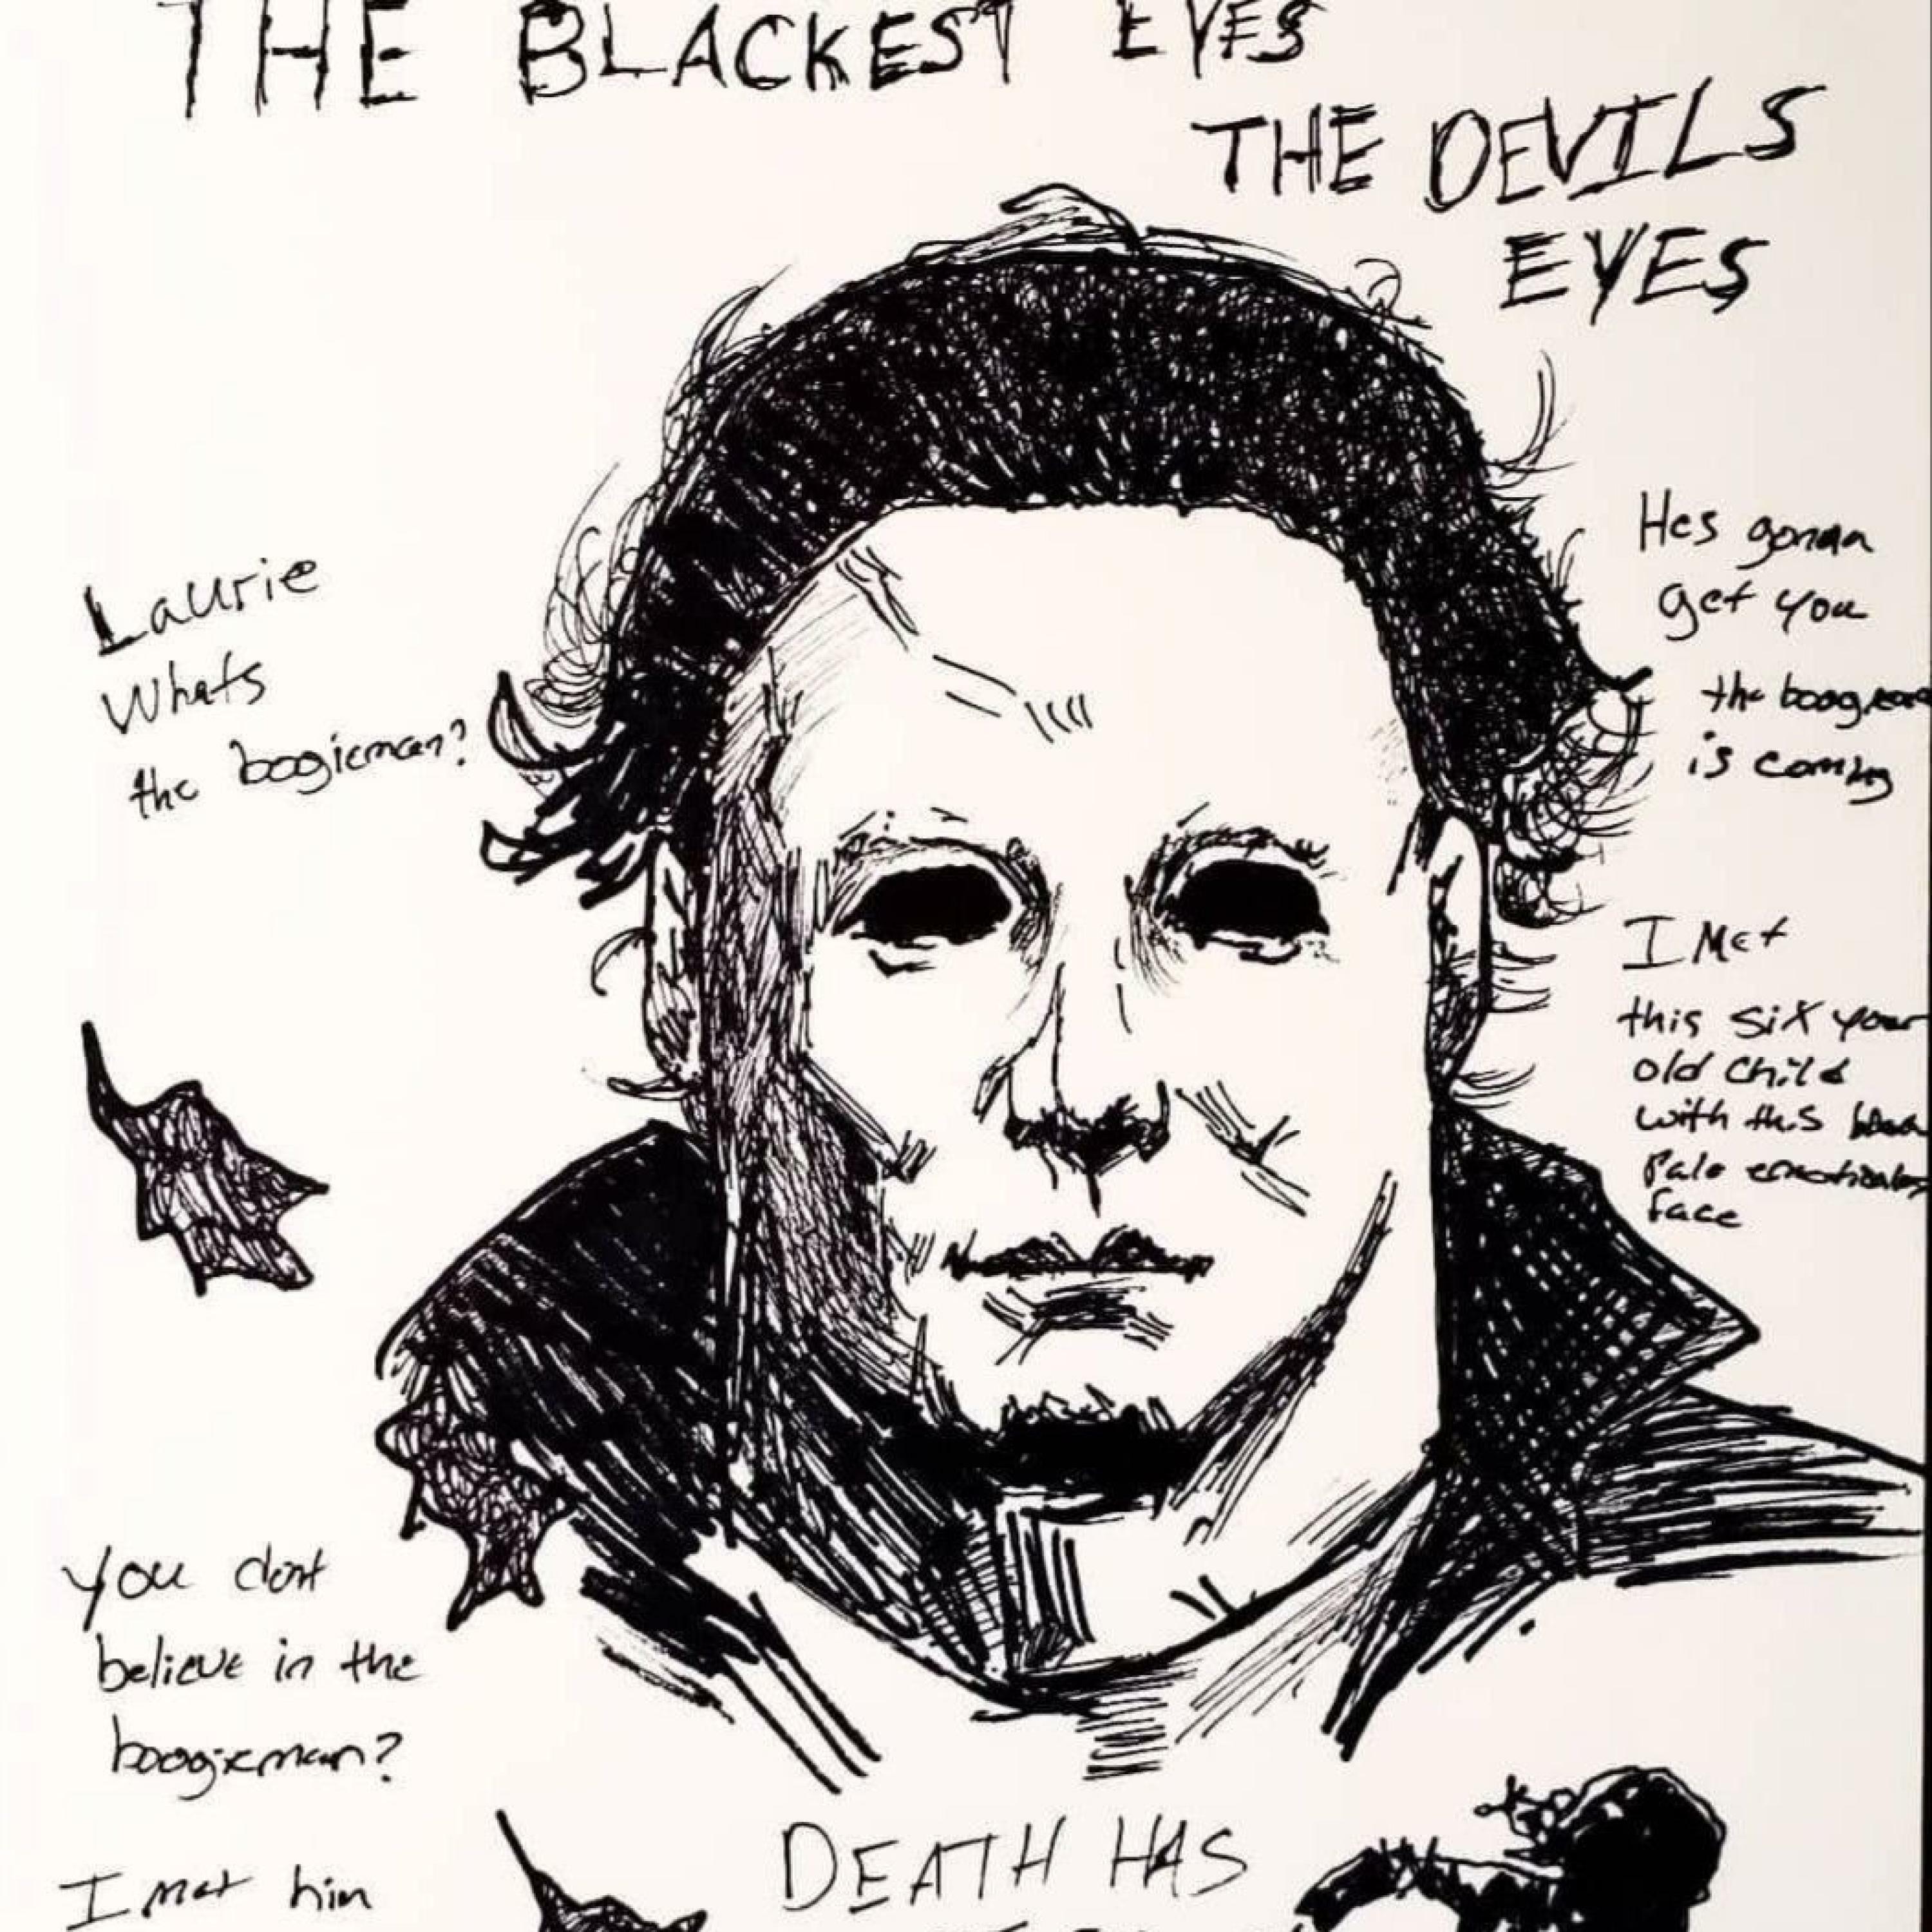 THE BLACKEST EYES
THE DEVILS
EYES
Laurie
Whats
the boogieman?
Hes gonna
get you
the
is coming
I Met
this six year
old child
with this
Pale
face
you dont
believe in the
boogieman?
I met him
DEATH HAS